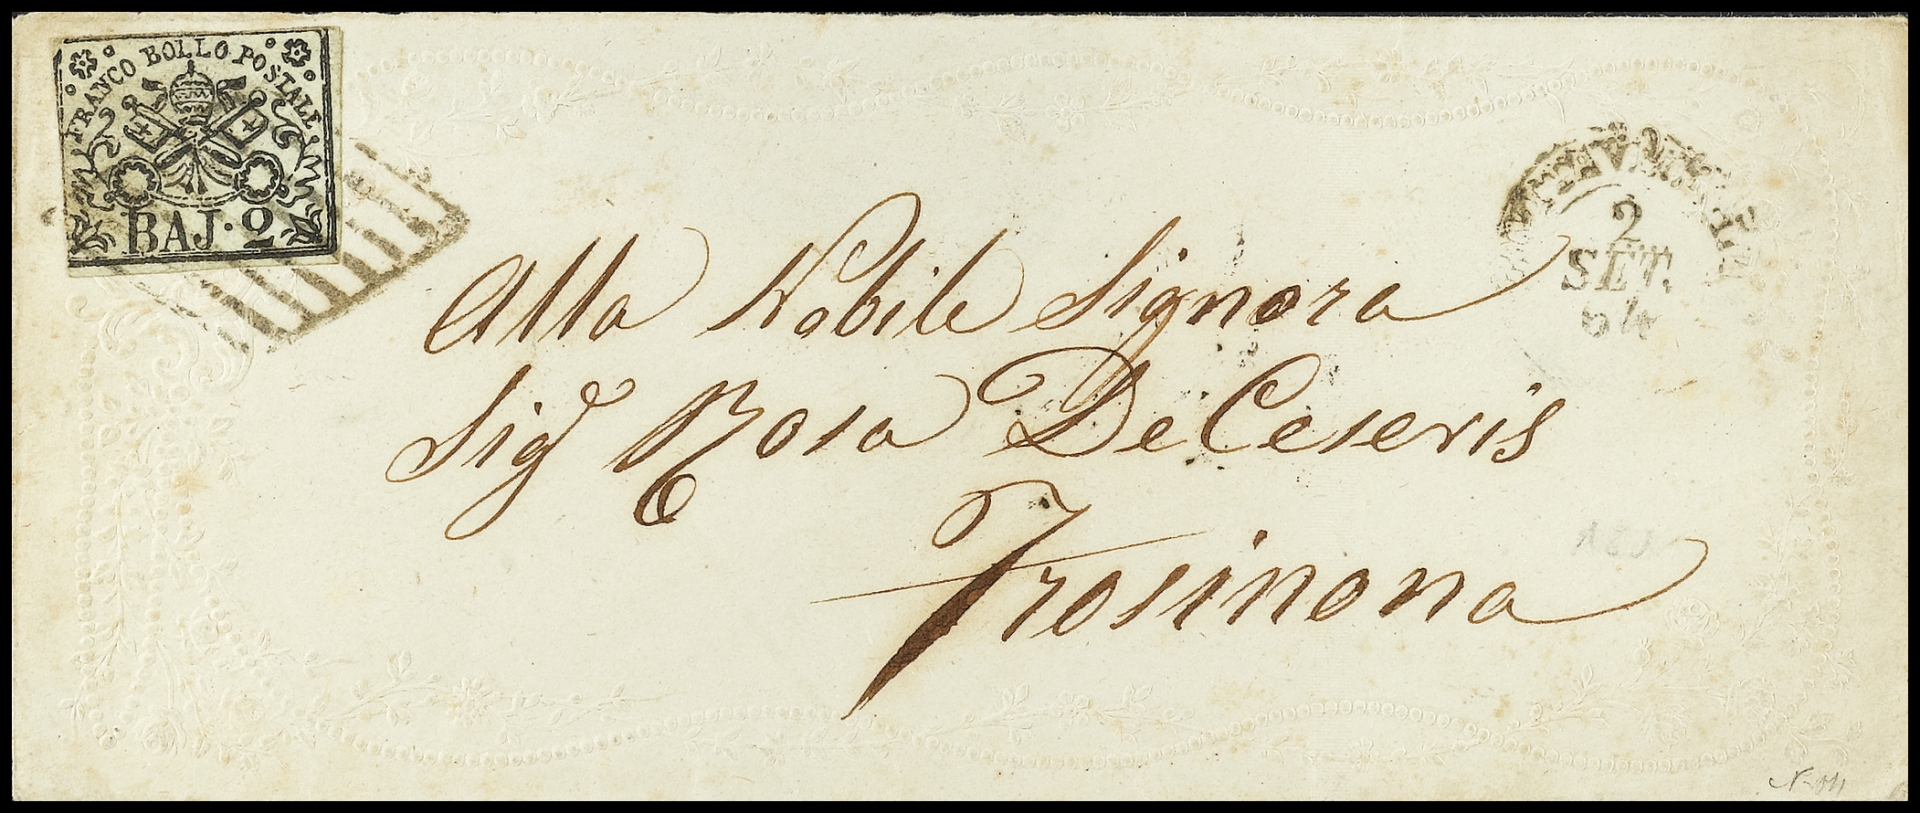 FRANCO BOLLO POSTALE
BAJ. 2
2
SET.
64
Alla Nobile Signora
Sigᵃ Rosa DeCeseris
Frosinona